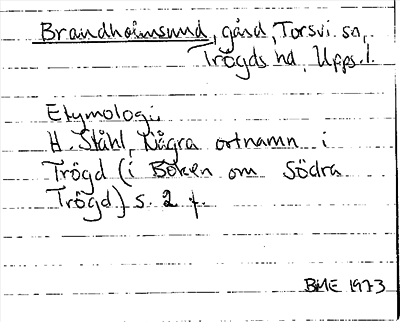 Brandholmsund, gård, Torsvi sn,
Trögds hd, Upps. l.
Etymologi.
H. Ståhl, Några ortnamn i
Trögd (i Boken om Södra
Trögd) s. 2 f.
1973